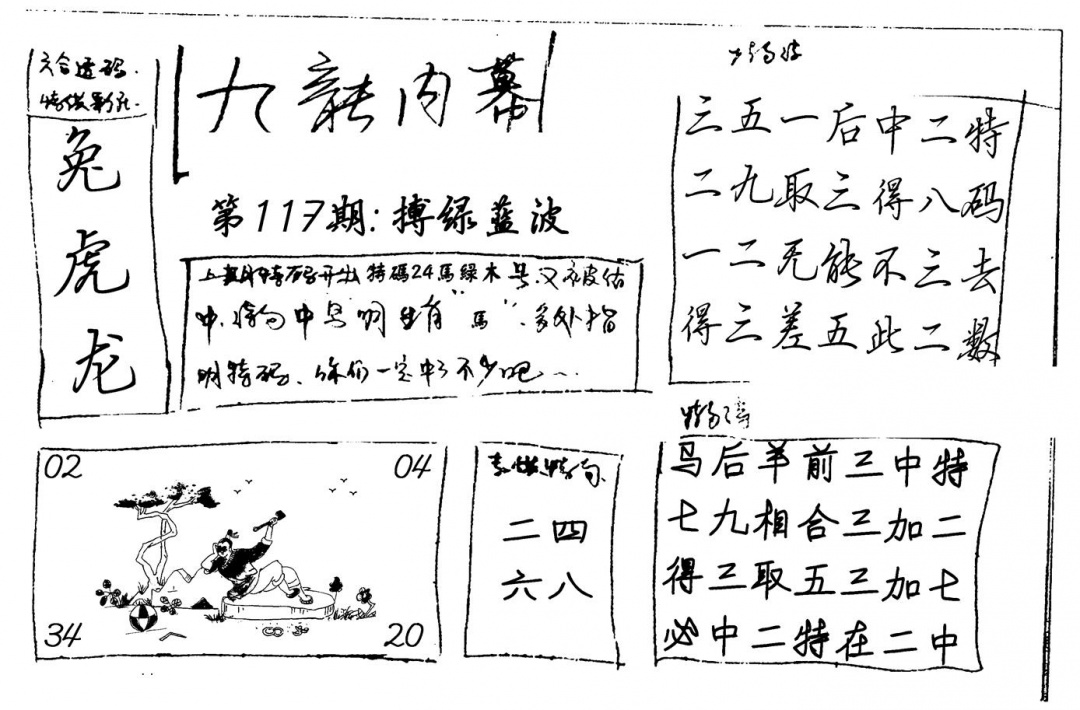 六合透码
兔
虎
龙
九龍内幕
第117期:搏绿蓝波
上期特码开出特碼24馬綠木号又被估
中 特句中号明显有“馬”多处指
明特码、你们一定中了不少吧
三五一后中二特
二九取三得八码
一二无能不三去
得三差五此二数
02
04
34
20
二四
六八
马后羊前三中特
七九相合三加二
得三取五三加七
必中二特在二中